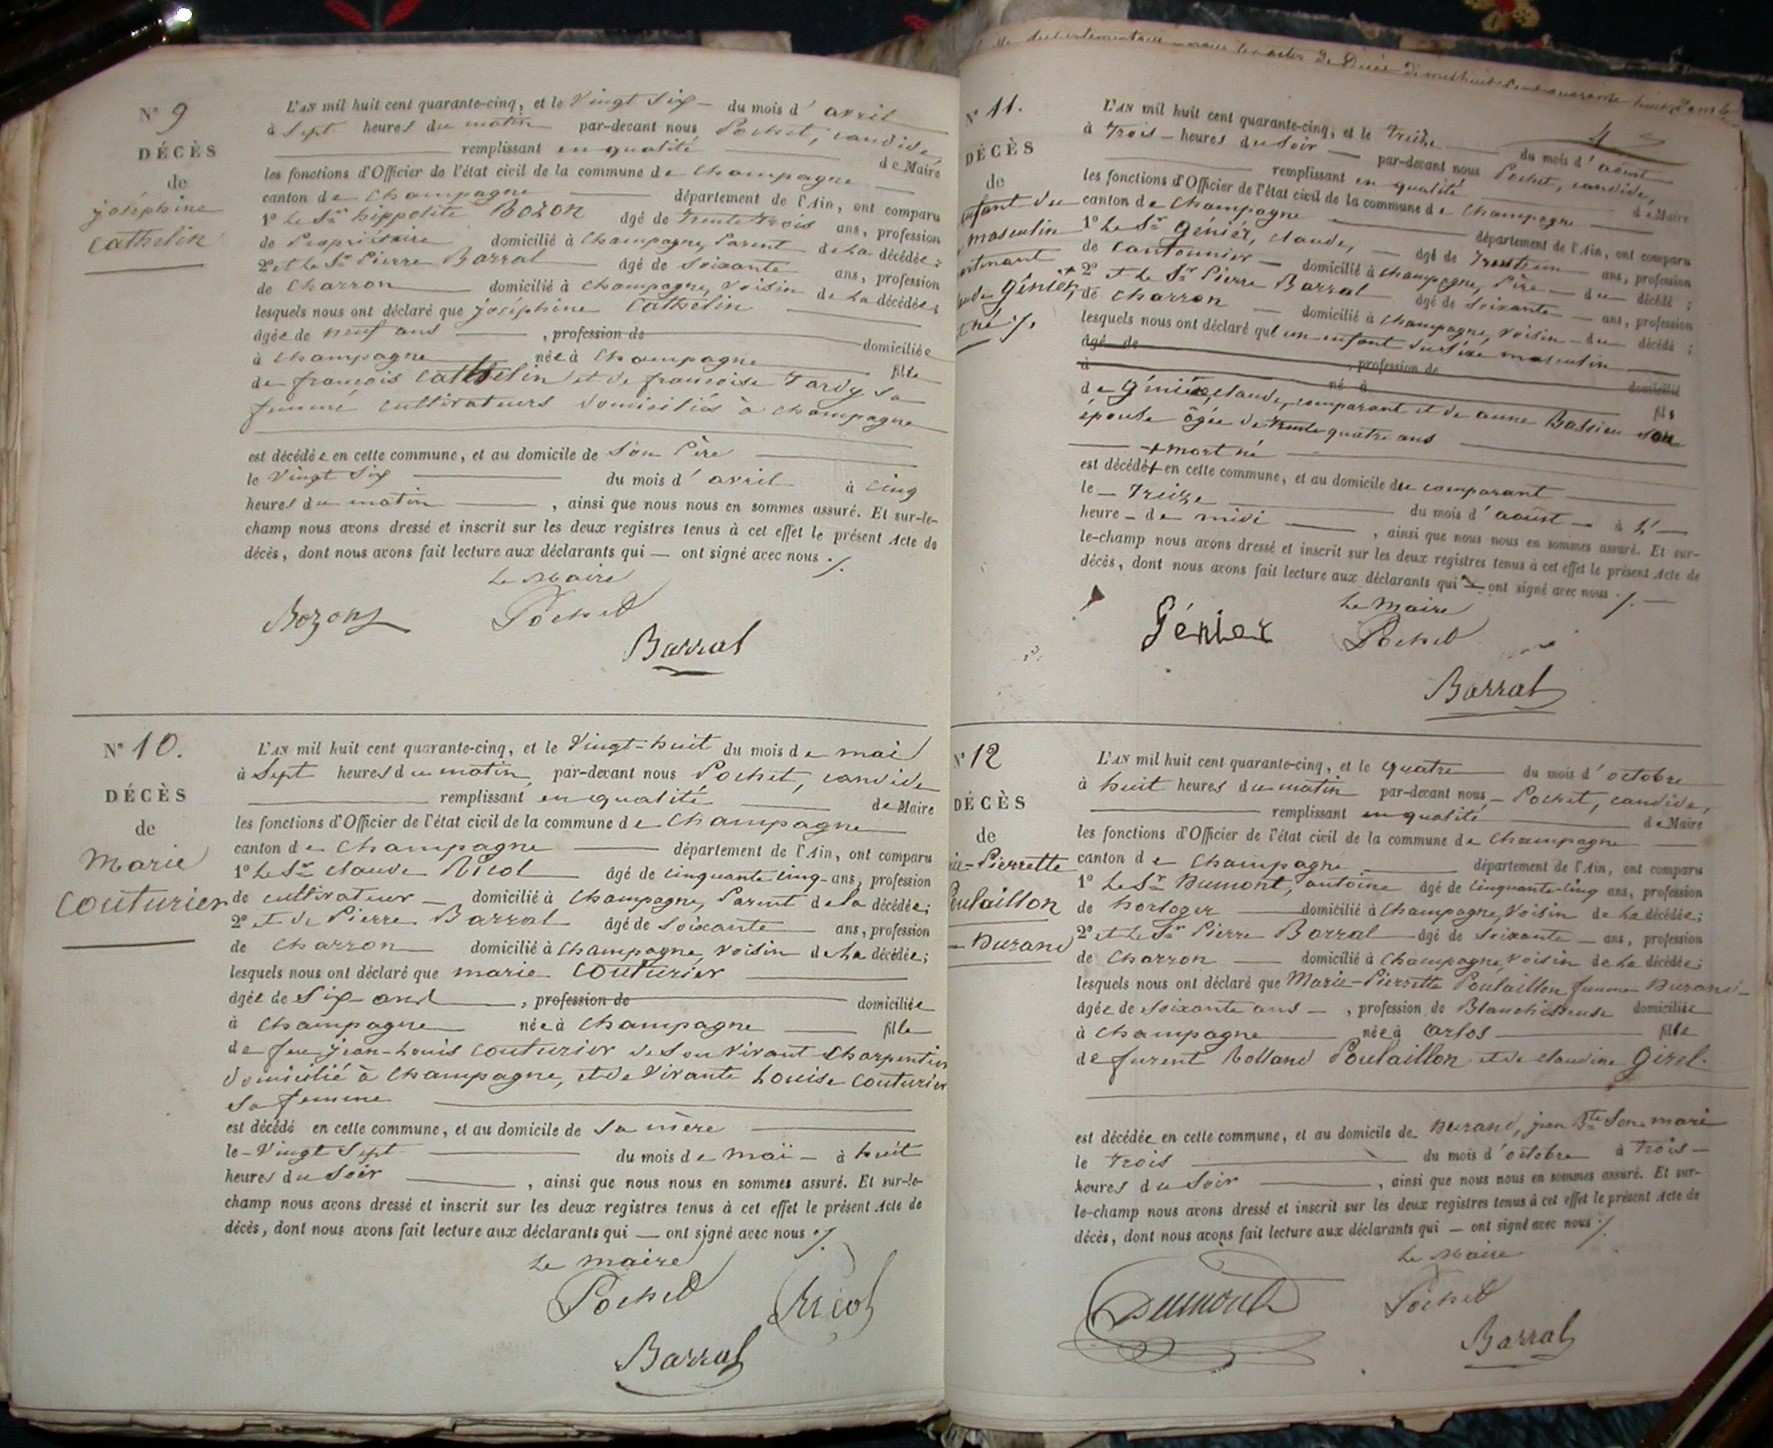 N° 9
DÉCÈS
de
joséphine
Cathelin
L'AN mil huit cent quarante-cinq, et le Vingt Six du mois d'avril
à Sept heures du matin par-devant nous Pochet, candide,
remplissant en qualité de Maire
les fonctions d'Officier de l'état civil de la commune de Champagne
canton de Champagne département de l'Ain, ont comparu
1° Le Sr. hippolite Bozon âgé de trente trois ans, profession
de Propriétaire domicilié à Champagne, Parent de La décédée;
2° et Le Sr. Pierre Barral âgé de Soixante ans, profession
de Charron domicilié à Champagne, Voisin de La décédée;
lesquels nous ont déclaré que joséphine Cathelin
âgée de neuf ans, profession de domiciliée
à Champagne née à Champagne fille
de françois Cathelin et de françoise Tardy sa
femme cultivateurs domiciliés à Champagne
est décédée en cette commune, et au domicile de Son Père
le Vingt Six du mois d'avril à cinq
heures du matin, ainsi que nous nous en sommes assuré. Et sur-le-
champ nous avons dressé et inscrit sur les deux registres tenus à cet effet le présent Acte de
décès, dont nous avons fait lecture aux déclarants qui — ont signé avec nous ./.
Le Maire
Bozon Pochet
Barral
N° 10.
DÉCÈS
de
Marie
Couturier
L'AN mil huit cent quarante-cinq, et le Vingt-huit du mois de mai
à Sept heures du matin par-devant nous Pochet, candide
remplissant en qualité de Maire
les fonctions d'Officier de l'état civil de la commune de Champagne
canton de Champagne département de l'Ain, ont comparu
1° Le Sr. Claude Nicol âgé de cinquante cinq ans, profession
de cultivateur domicilié à Champagne, Parent de la décédée;
2° et de Pierre Barral âgé de Soixante ans, profession
de Charron domicilié à Champagne, Voisin de La décédée;
lesquels nous ont déclaré que marie Couturier
âgée de Six ans, profession de domiciliée
à Champagne née à Champagne fille
de feu jean-Louis Couturier de Son Vivant Charpentier
domicilié à Champagne, et de Vivante Louise Couturier
Sa femme
est décédé en cette commune, et au domicile de Sa mère
le Vingt Sept du mois de maï à huit
heures du Soir, ainsi que nous nous en sommes assuré. Et sur-le-
champ nous avons dressé et inscrit sur les deux registres tenus à cet effet le présent Acte de
décès, dont nous avons fait lecture aux déclarants qui — ont signé avec nous ./.
Le maire
Pochet Nicol
Barral
N° 11.
DÉCÈS
de
enfant du
masculin
Génier
né ./.
4
L'AN mil huit cent quarante-cinq, et le treize du mois d'aoust
à trois heures du Soir par-devant nous Pochet, candide,
remplissant en qualité de Maire
les fonctions d'Officier de l'état civil de la commune de Champagne
canton de Champagne département de l'Ain, ont comparu
1° Le Sr. Génier, claude, âgé de trente un ans, profession
de Cantonnier domicilié à Champagne, Père du décédé;
2° et Le Sr. Pierre Barral âgé de Soixante ans, profession
de Charron domicilié à Champagne, Voisin du décédé;
lesquels nous ont déclaré que un enfant du Sèxe masculin
âgé de, profession de domicilié
à né à fils
de Génier, claude, comparant et de anne Bassieu son
épouse âgée de trente quatre ans
+ mort né
est décédé + en cette commune, et au domicile du comparant
le treize du mois d'aoust à
heure de midi, ainsi que nous nous en sommes assuré. Et sur-
le-champ nous avons dressé et inscrit sur les deux registres tenus à cet effet le présent Acte de
décès, dont nous avons fait lecture aux déclarants qui — ont signé avec nous ./.
Le Maire
Génier Pochet
Barral
N° 12
DÉCÈS
de
Pierrette
Poulaillon
Durand
L'AN mil huit cent quarante-cinq, et le quatre du mois d'octobre
à huit heures du matin par-devant nous Pochet, candide,
remplissant en qualité de Maire
les fonctions d'Officier de l'état civil de la commune de Champagne
canton de Champagne département de l'Ain, ont comparu
1° Le Sr. Dumont, antoine âgé de cinquante-cinq ans, profession
de horloger domicilié à Champagne, Voisin de La décédée;
2° et Le Sr. Pierre Barral âgé de Soixante ans, profession
de Charron domicilié à Champagne, Voisin de La décédée;
lesquels nous ont déclaré que Marie-Pierrette Poulaillon femme Durand
âgée de Soixante ans, profession de Blanchisseuse domiciliée
à Champagne née à arlos fille
de furent Rolland Poulaillon et de claudine Girel.
est décédée en cette commune, et au domicile de Durand, jean Bte. Son mari
le trois du mois d'octobre à trois
heures du Soir, ainsi que nous nous en sommes assuré. Et sur-
le-champ nous avons dressé et inscrit sur les deux registres tenus à cet effet le présent Acte de
décès, dont nous avons fait lecture aux déclarants qui — ont signé avec nous ./.
Le Maire
Dumont Pochet
Barral